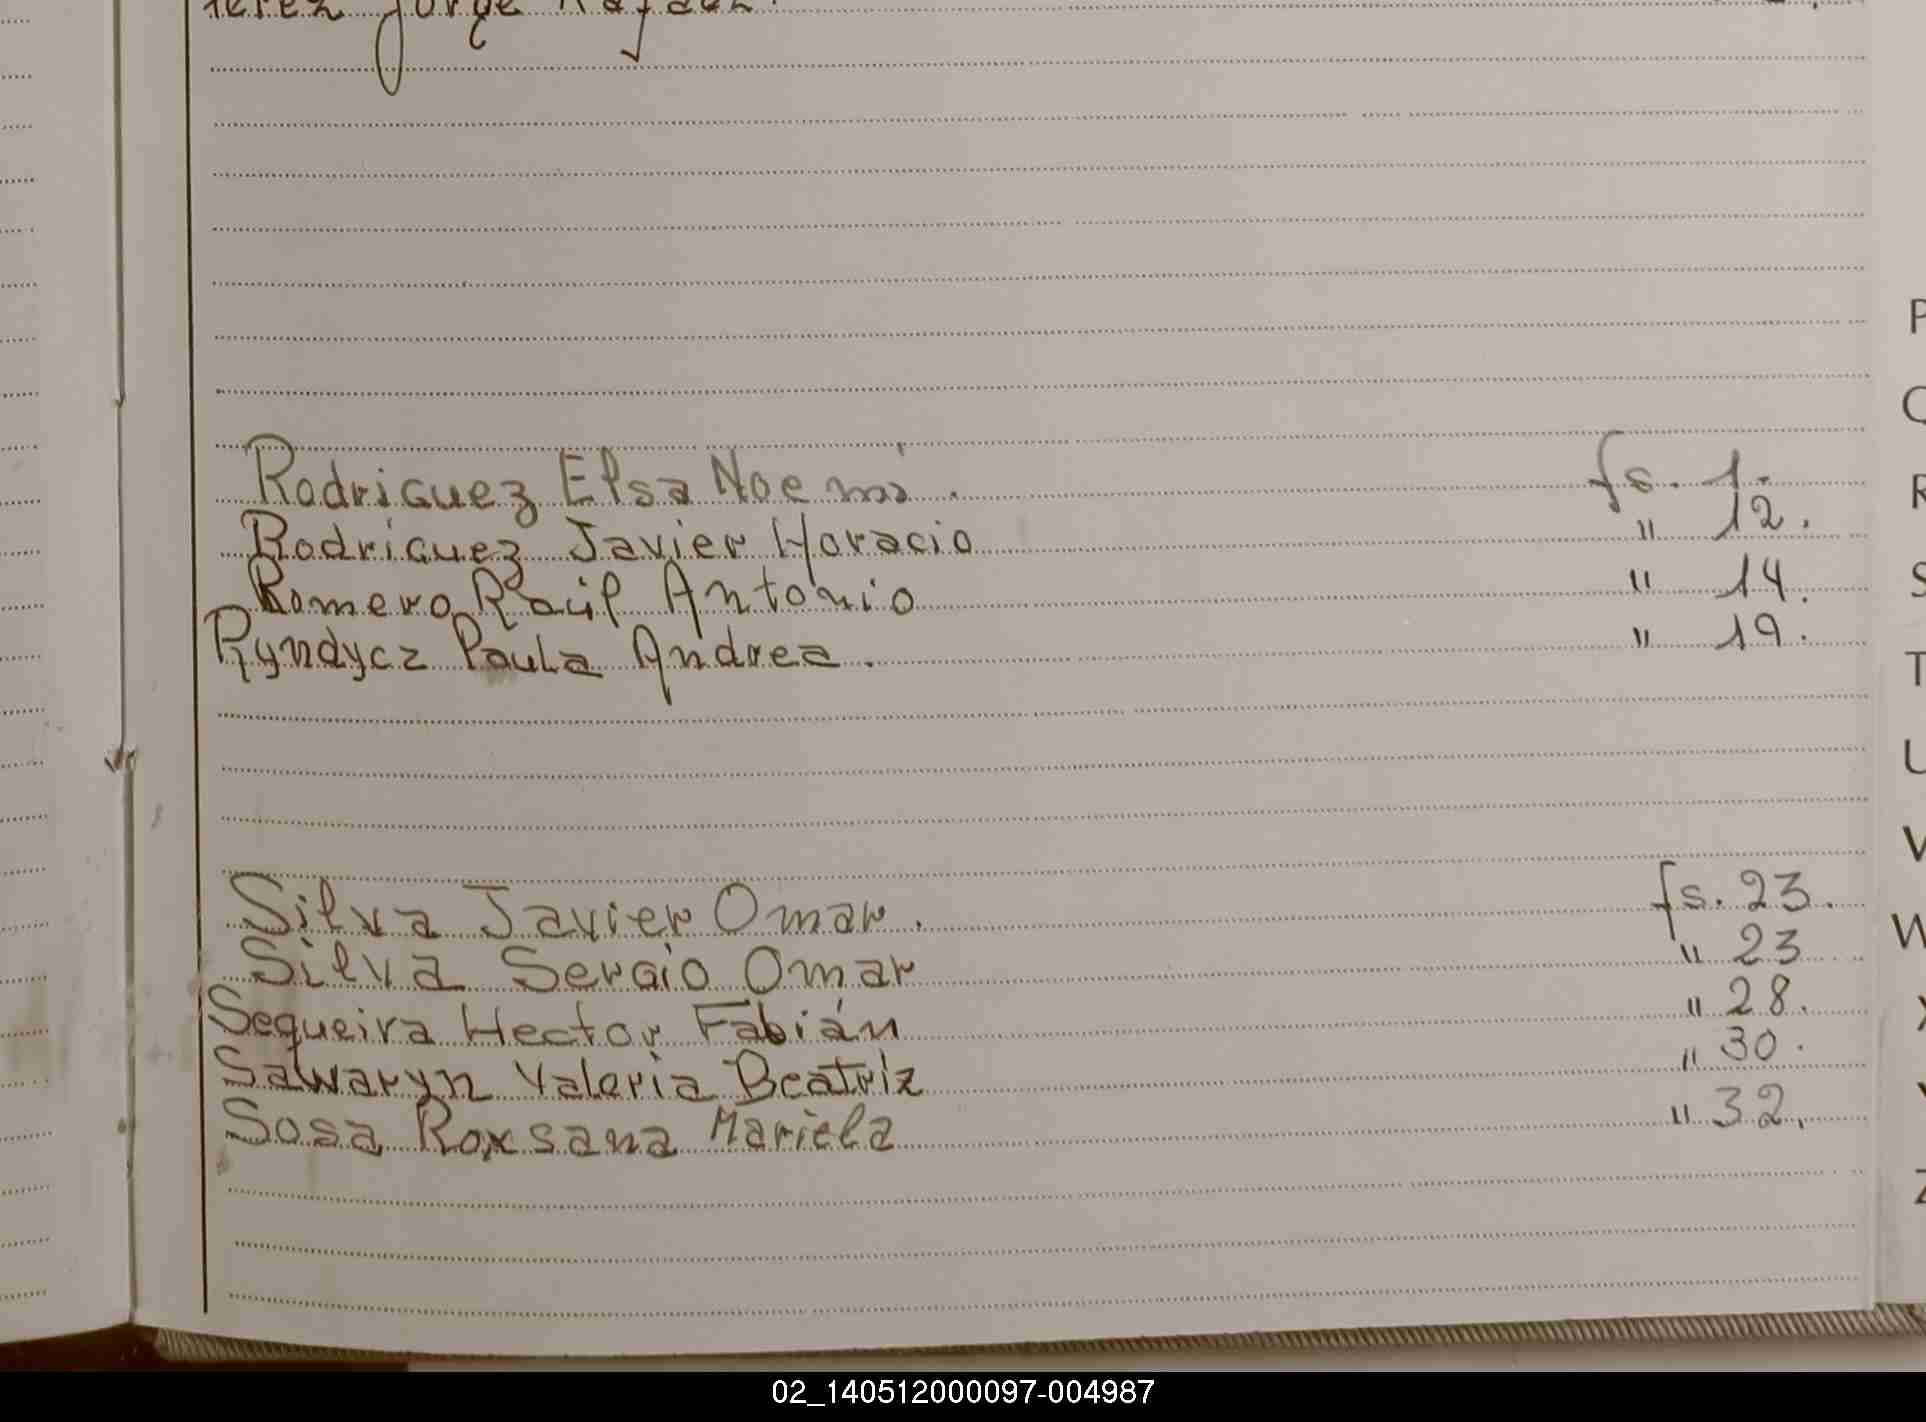 Perez Jorge Rafael.
Rodriguez Elsa Noemí. fs. 1.
Rodriguez Javier Horacio " 12.
Romero Raúl Antonio " 14.
Ryndycz Paula Andrea. " 19.
Silva Javier Omar. fs. 23.
Silva Sergio Omar " 23
Sequeira Hector Fabián " 28.
Sawaryn Valeria Beatriz " 30.
Sosa Roxsana Mariela " 32.
P
Q
R
S
T
U
V
W
X
Y
Z
02_140512000097-004987